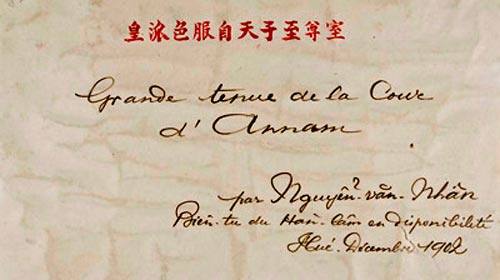 皇派色服自天子至尊室
Grande tenue de la Cour
d'Annam
par Nguyễn-văn-Nhân
Biên-tu du Hàn-lâm en disponibilité
Hué-Décembre 1902